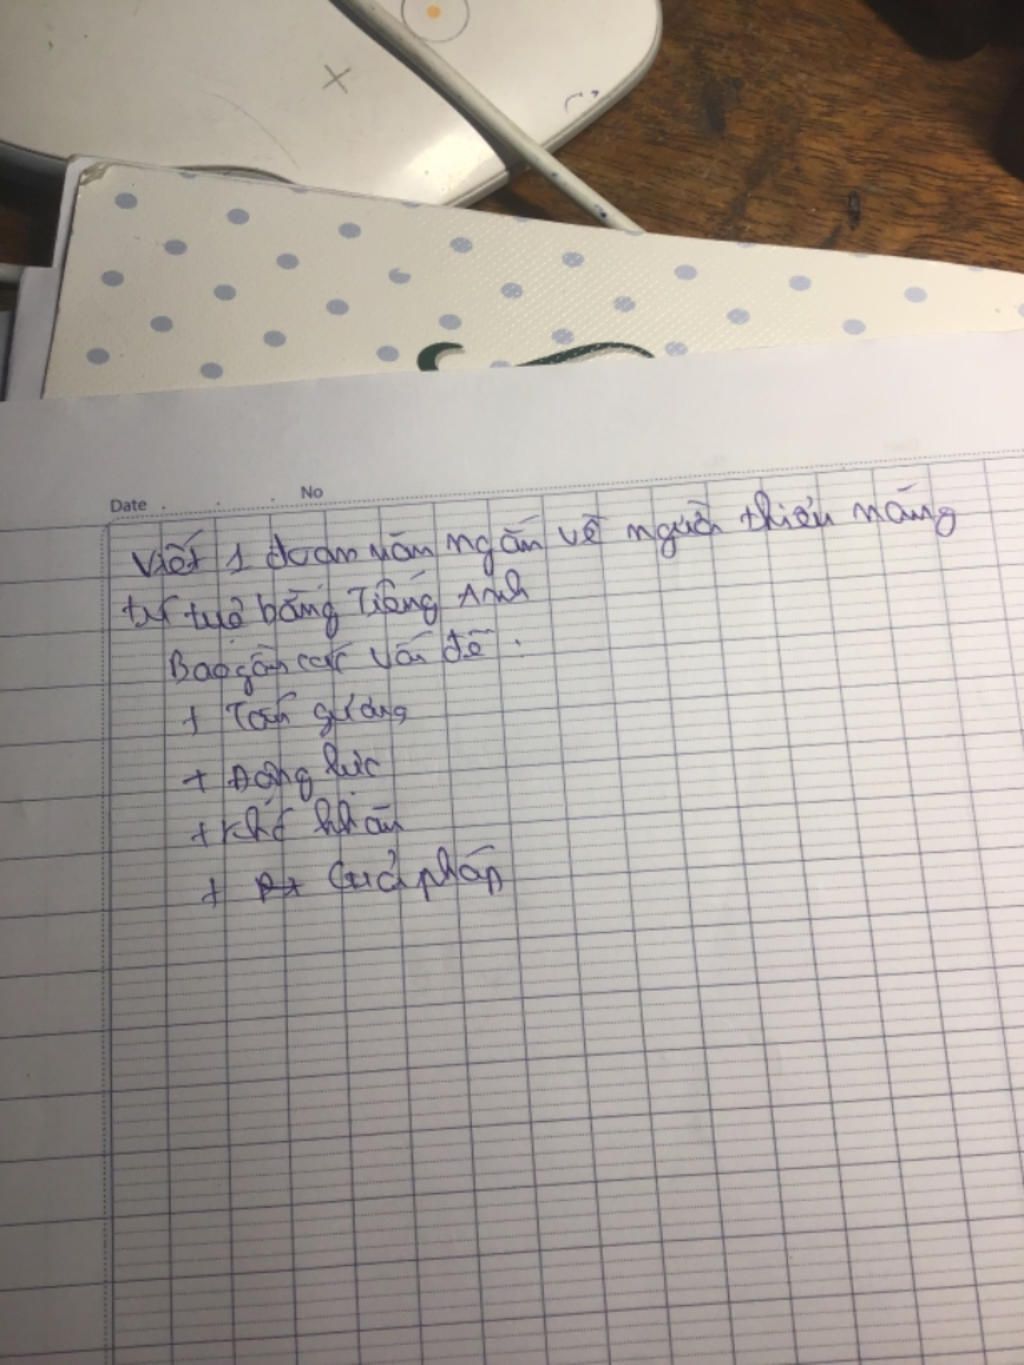 Date . . . No
Viết 1 đoạn văn ngắn về người thiểu năng
trí tuệ bằng Tiếng Anh
Bao gồm các vấn đề :
+ Tấm gương
+ Động lực
+ Khó khăn
+ Giải pháp